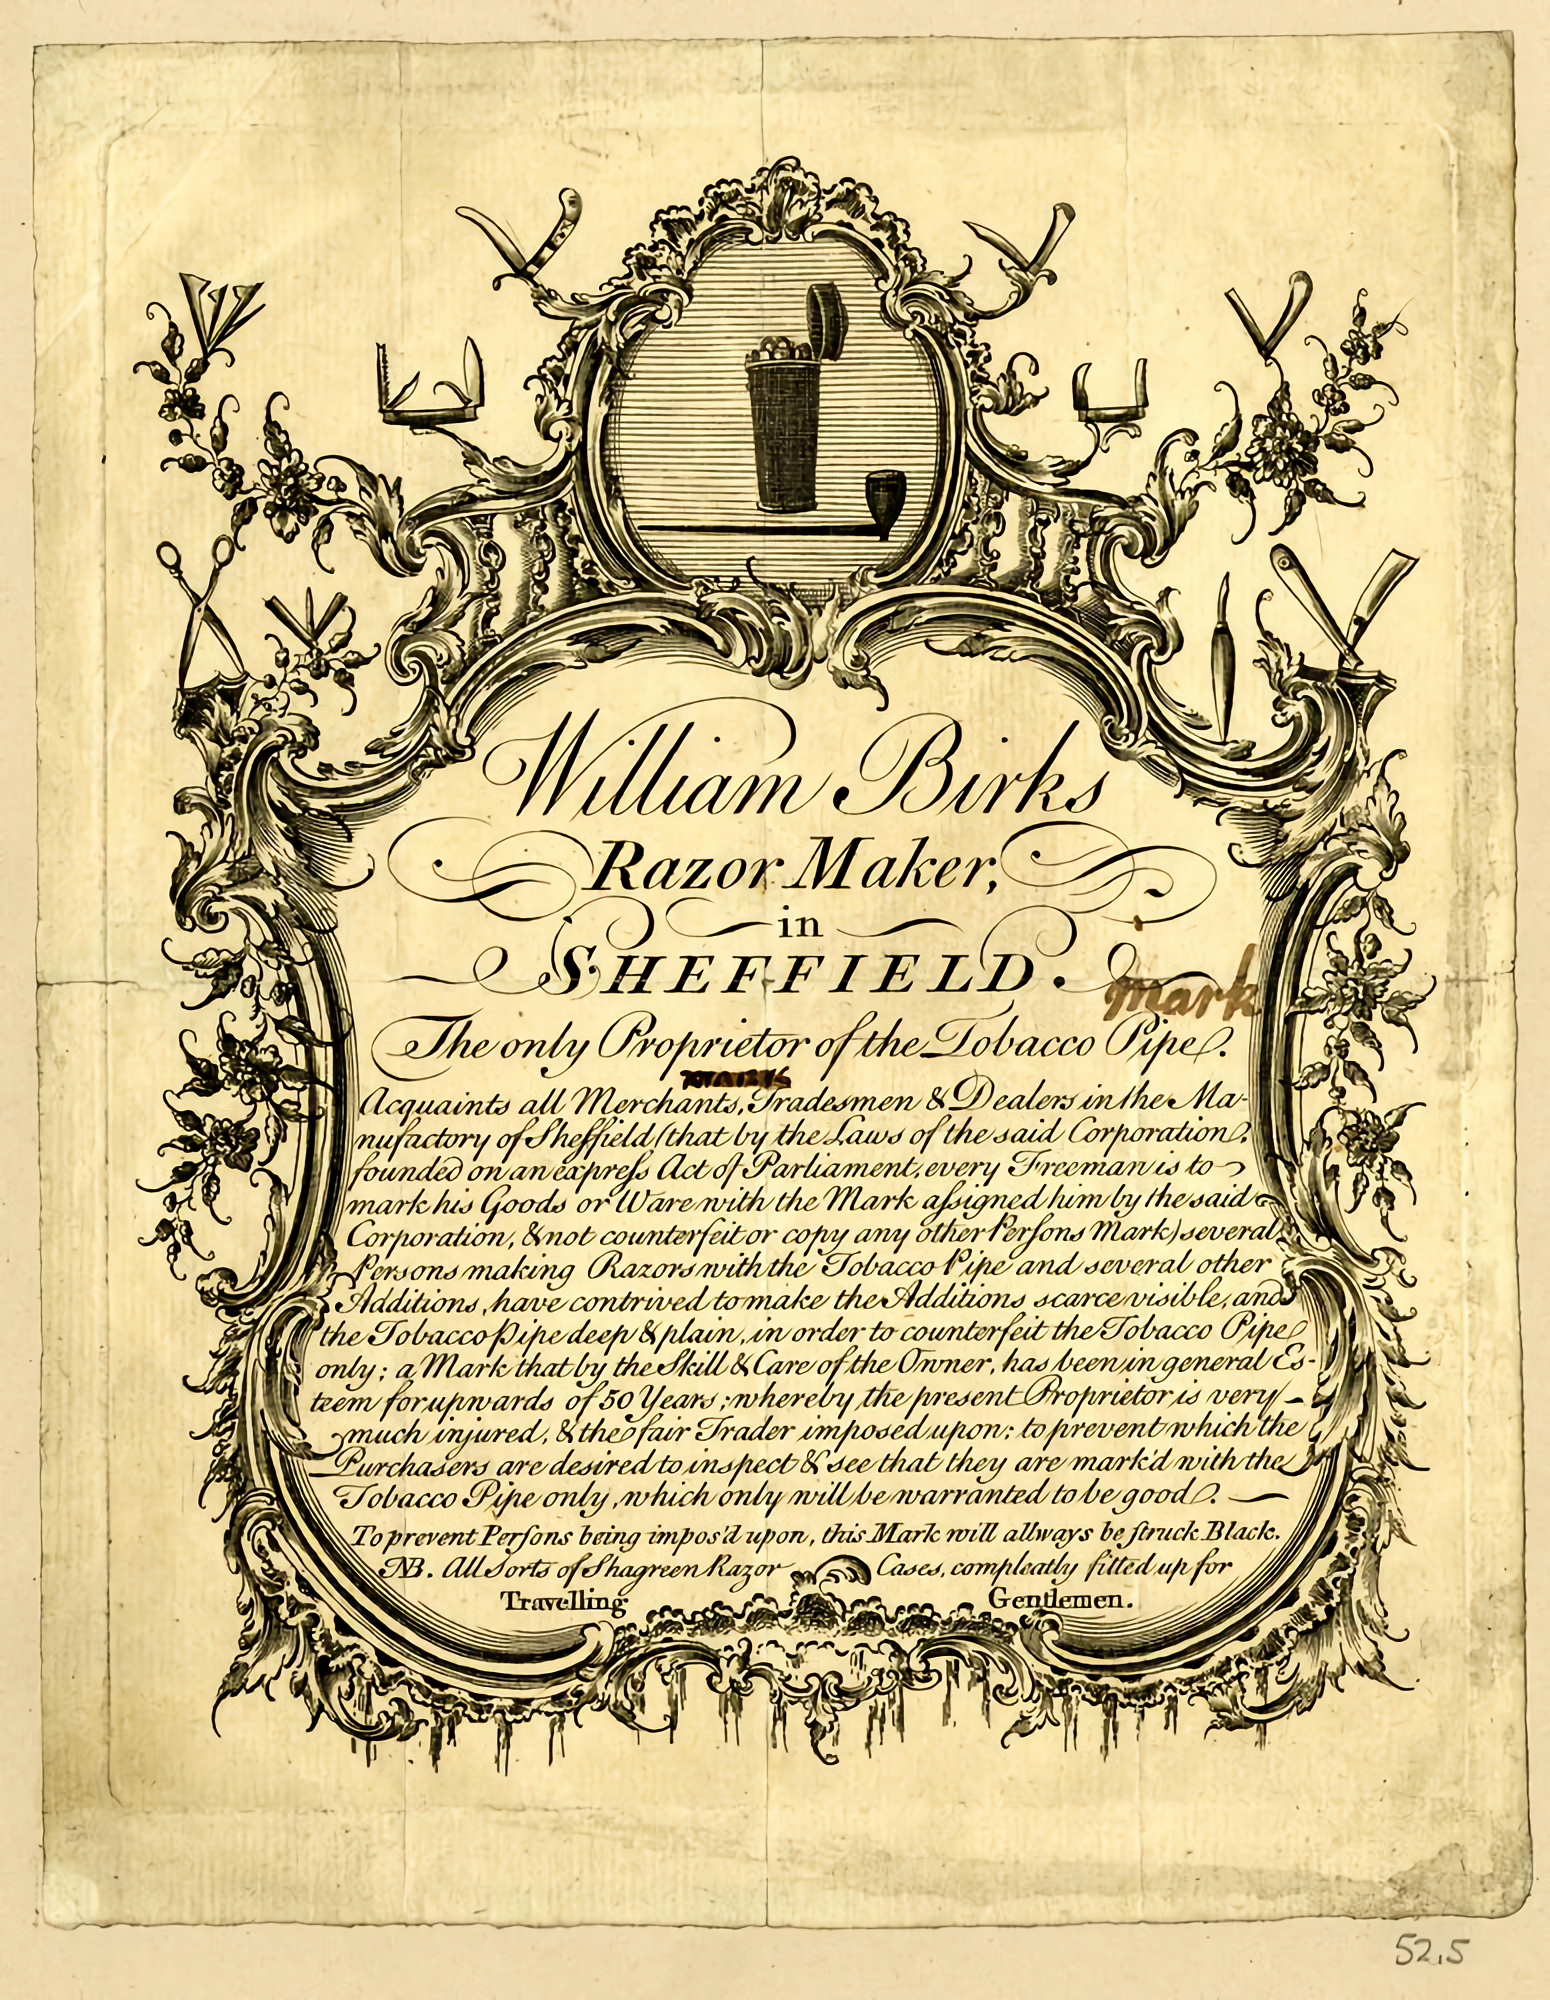 William Birks
Razor Maker,
in
SHEFFIELD.
Mark
The only Proprietor of the Tobacco Pipe.
Acquaints all Merchants, Tradesmen & Dealers in the Ma-
nufactory of Sheffield (that by the Laws of the said Corporation,
founded on an expreſs Act of Parliament, every Freeman is to
mark his Goods or Ware with the Mark aſsigned him by the said
Corporation, & not counterfeit or copy any other Perſons Mark) several
Persons making Razors with the Tobacco Pipe and several other
Additions, have contrived to make the Additions scarce visible, and
the Tobacco Pipe deep & plain, in order to counterfeit the Tobacco Pipe
only; a Mark that by the Skill & Care of the Owner, has been in general Es-
teem for upwards of 50 Years; whereby the present Proprietor is very
much injured, & the fair Trader imposed upon: to prevent which the
Purchasers are desired to inspect & see that they are mark'd with the
Tobacco Pipe only, which only will be warranted to be good.
To prevent Perſons being impos'd upon, this Mark will allways be ſtruck Black.
NB. All Sorts of Shagreen Razor Cases, compleatly fitted up for
Travelling Gentlemen.
52.5